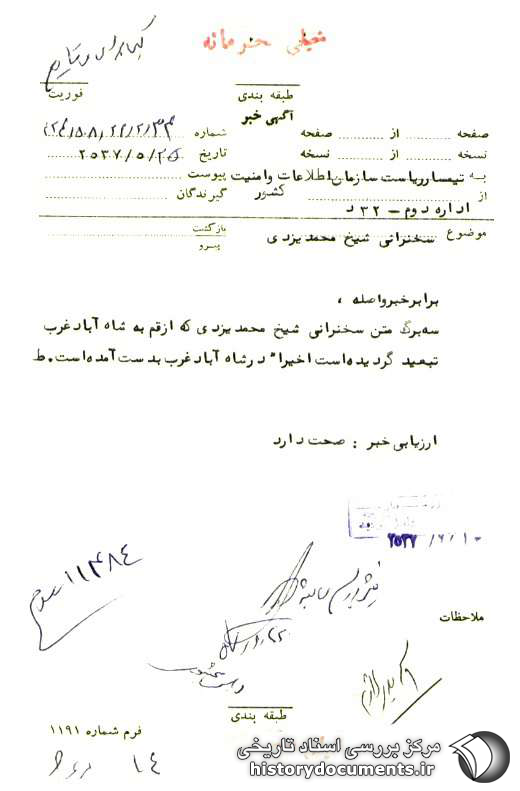 خیلی محرمانه
طبقه بندی
فوریت
آگهی خبر
صفحه از صفحه شماره
نسخه از نسخه تاریخ ۲۵۳۷/۵/۲۵
به تیمسار ریاست سازمان اطلاعات و امنیت کشور پیوست
از اداره دوم – ۳۲ د گیرندگان
موضوع سخنرانی شیخ محمد یزدی
بازگشت
پیرو
برابر خبر واصله ،
سه برگ متن سخنرانی شیخ محمد یزدی که از قم به شاه آباد غرب
تبعید گردیده است اخیراً در شاه آباد غرب بدست آمده است. ط
ارزیابی خبر : صحت دارد
۲۵۳۷/۶/۱۰
۱۱۴۸۴
ملاحظات
طبقه بندی
فرم شماره ۱۱۹۱
۱۴
مرکز بررسی اسناد تاریخی
historydocuments.ir